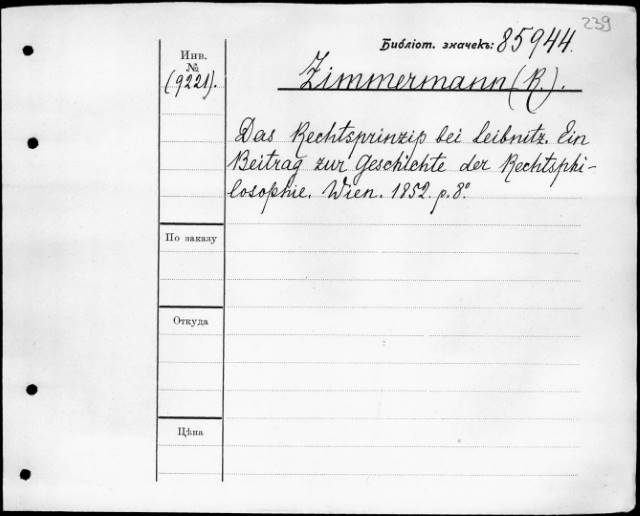 239
Библіот. значекъ: 85944.
Инв.
№
(9221).
Zimmermann (R.).
Das Rechtsprinzip bei Leibnitz. Ein
Beitrag zur Geschichte der Rechtsphi-
losophie. Wien. 1852. p. 8º
По заказу
Откуда
Цѣна